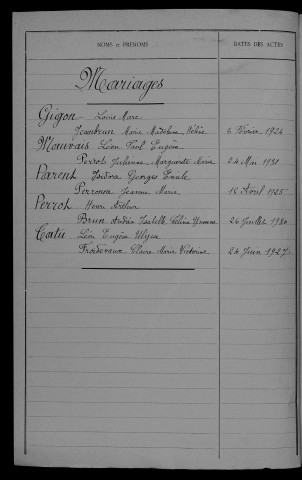 NOMS et PRÉNOMS DATES DES ACTES
Mariages
Gigon Louis Marc
Jeanbrun Marie Madeleine Hélène 6 Février 1924
Mauvais Léon Paul Eugène
Perrot Julienne Marguerite Marie 24 Mai 1931
Parent Isidore Georges Emile
Perronne Jeanne Marie 18 Avril 1925
Perrot Henri Arthur
Brun Andréa Isabelle Célina Yvonne 26 Juillet 1930
Catu Léon Eugène Ulysse
Froidevaux Claire Marie Victorine 24 Juin 1927